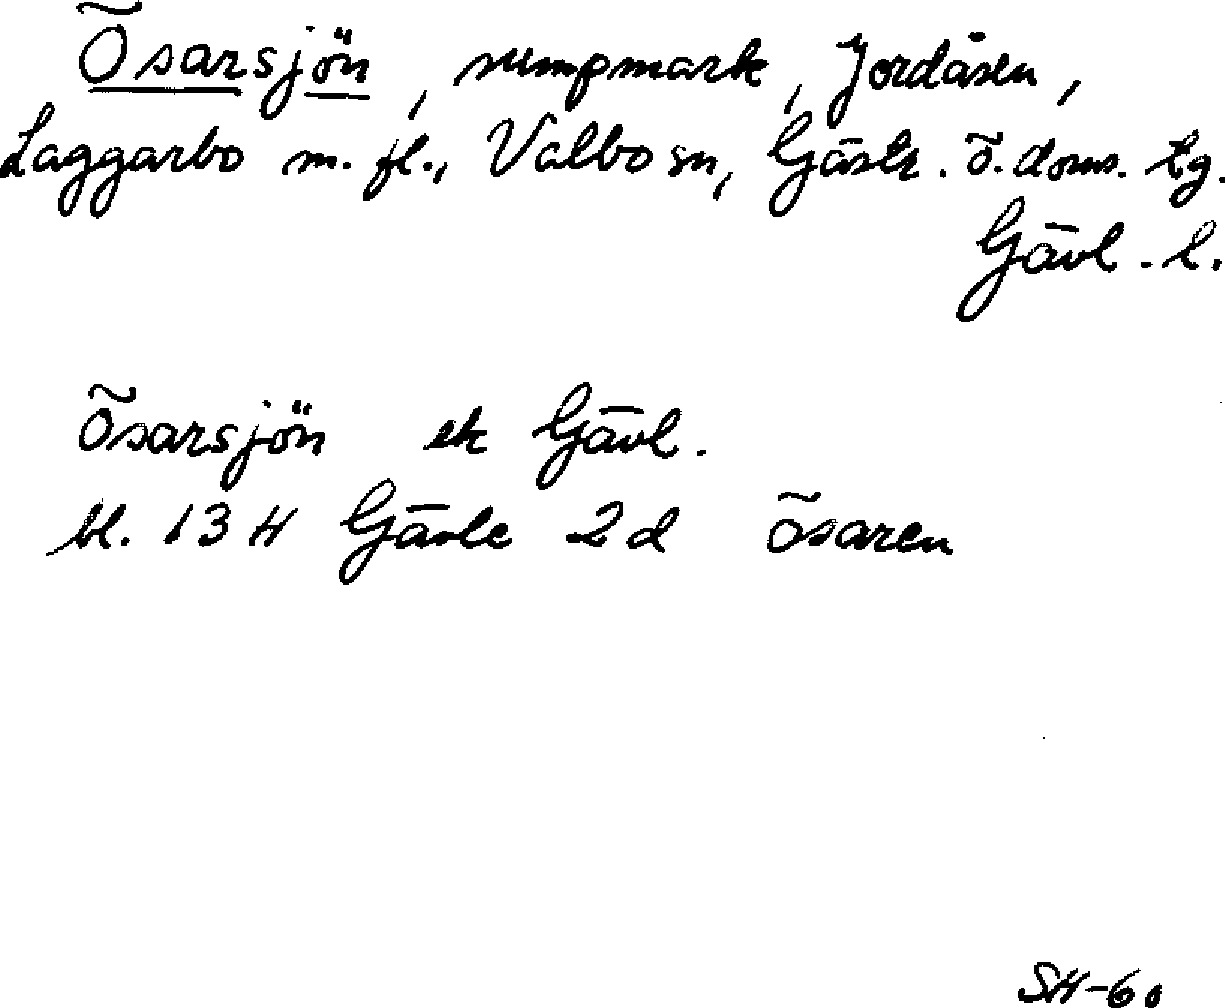 Ösarsjön, sumpmark, Jordåsen,
Laggarbo m. fl., Valbo sn, Gästr. ö. doms. tg.
Gävl. l.
Ösarsjön ek Gävl.
bl. 13 H Gävle 2 d Ösaren
SH-60